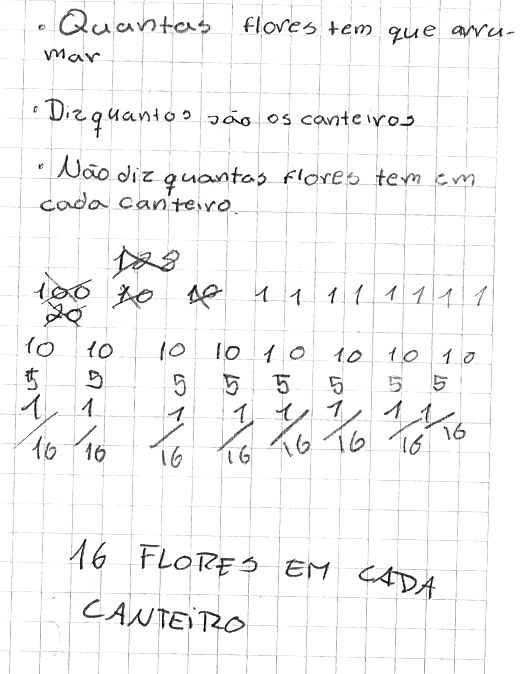 • Quantas flores tem que arru-
mar
• Diz quantos são os canteiros
• Não diz quantas flores tem em
cada canteiro.
128
100 20 10 1 1 1 1 1 1 1 1
20
10 10 10 10 10 10 10 10
5 5 5 5 5 5 5 5
1 1 1 1 1 1 1 1
16 16 16 16 16 16 16 16
16 FLORES EM CADA
CANTEIRO